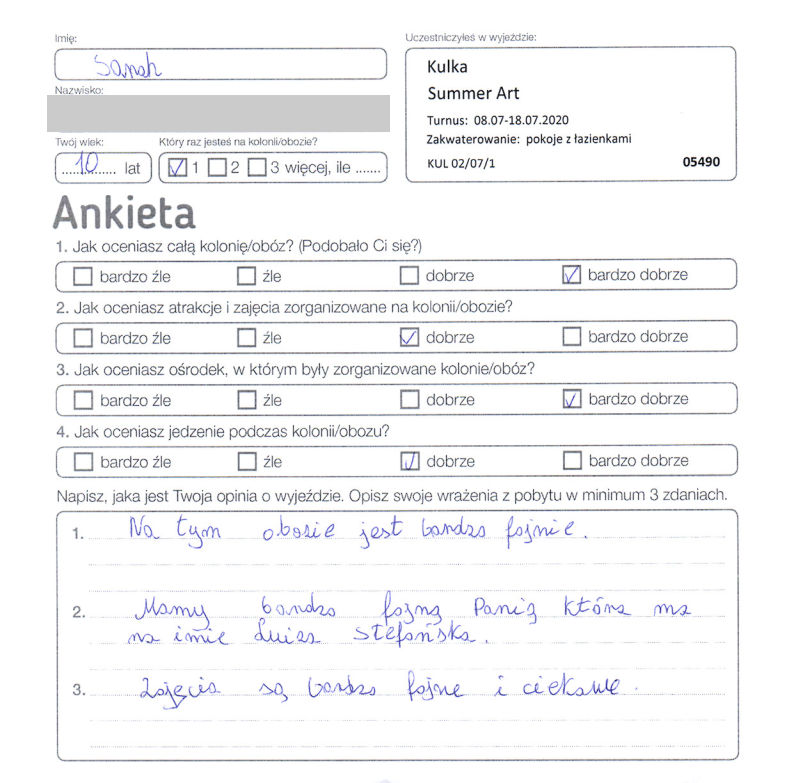 Imię:
Sarah
Nazwisko:
Twój wiek:
10 lat
Który raz jesteś na kolonii/obozie?
1 2 3 więcej, ile .......
Uczestniczyłeś w wyjeździe:
Kulka
Summer Art
Turnus: 08.07-18.07.2020
Zakwaterowanie: pokoje z łazienkami
KUL 02/07/1 05490
Ankieta
1. Jak oceniasz całą kolonię/obóz? (Podobało Ci się?)
bardzo źle źle dobrze bardzo dobrze
2. Jak oceniasz atrakcje i zajęcia zorganizowane na kolonii/obozie?
bardzo źle źle dobrze bardzo dobrze
3. Jak oceniasz ośrodek, w którym były zorganizowane kolonie/obóz?
bardzo źle źle dobrze bardzo dobrze
4. Jak oceniasz jedzenie podczas kolonii/obozu?
bardzo źle źle dobrze bardzo dobrze
Napisz, jaka jest Twoja opinia o wyjeździe. Opisz swoje wrażenia z pobytu w minimum 3 zdaniach.
1. Na tym obozie jest bardzo fajnie.
2. Mamy bardzo fajną Panią która ma
na imie Luiza Stefańska.
3. Zajęcia są bardzo fajne i ciekawe.